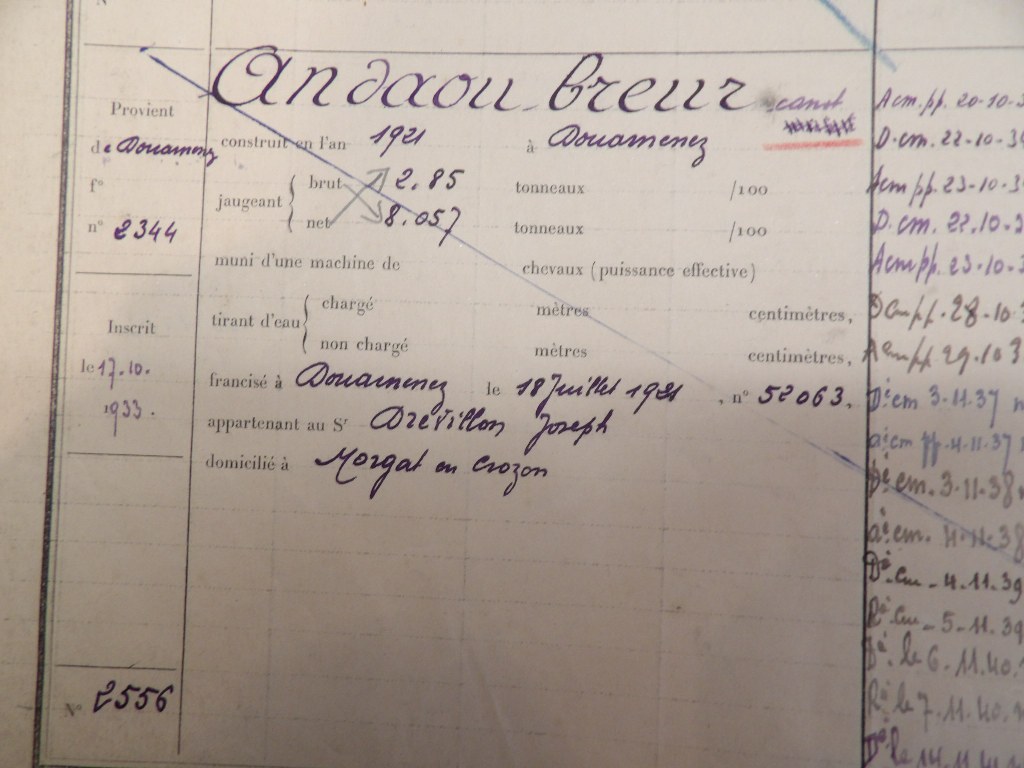 An daou breur canot
Provient
de Douarnenez
f°
n° 2344
Inscrit
le 17.10.
1933.
N° 2556
construit en l'an 1921 à Douarnenez
jaugeant { brut 2.85 tonneaux /100
net 8.057 tonneaux /100
muni d'une machine de chevaux (puissance effective)
tirant d'eau { chargé mètres centimètres,
non chargé mètres centimètres,
francisé à Douarnenez le 18 Juillet 1921, n° 52063,
appartenant au Sr Drévillon Joseph
domicilié à Morgat en Crozon
A cm. pp. 20-10-3
D. cm. 22-10-3
A cm pp. 23-10-3
D. cm. 22.10-3
A cm pp. 23-10-3
D cm pp. 28-10-3
A cm pp 29.10 3
D° cm 3.11.37
a° cm pp. 4.11.37
D° cm. 3.11.38
a° cm. 4.11.38
D° cm - 4.11.39
R° cm - 5-11.39
D° le 6.11.40.
R° le 7.11.40.
D° le 14.11